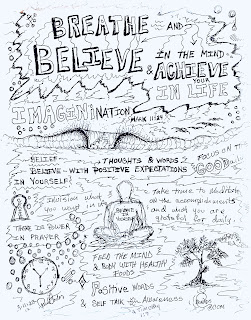 BREATHE AND
BELIEVE IN THE MIND
& ACHIEVE
YOUR
IN LIFE
IMAGINiNATION
MARK 11:24
BELIEF → THOUGHTS & WORDS
BELIEVE - WITH POSITIVE EXPECTATIONS
IN YOURSELF!
FOCUS ON THE
GOOD
Envision what
you want in
Take time to meditate
on the accomplishments
and what you are
grateful for daily.
THERE IS POWER
IN PRAYER
FEED THE MIND
& BODY WITH HEALTHY
FOODS
Positive WORDS
& SELF TALK
Awareness